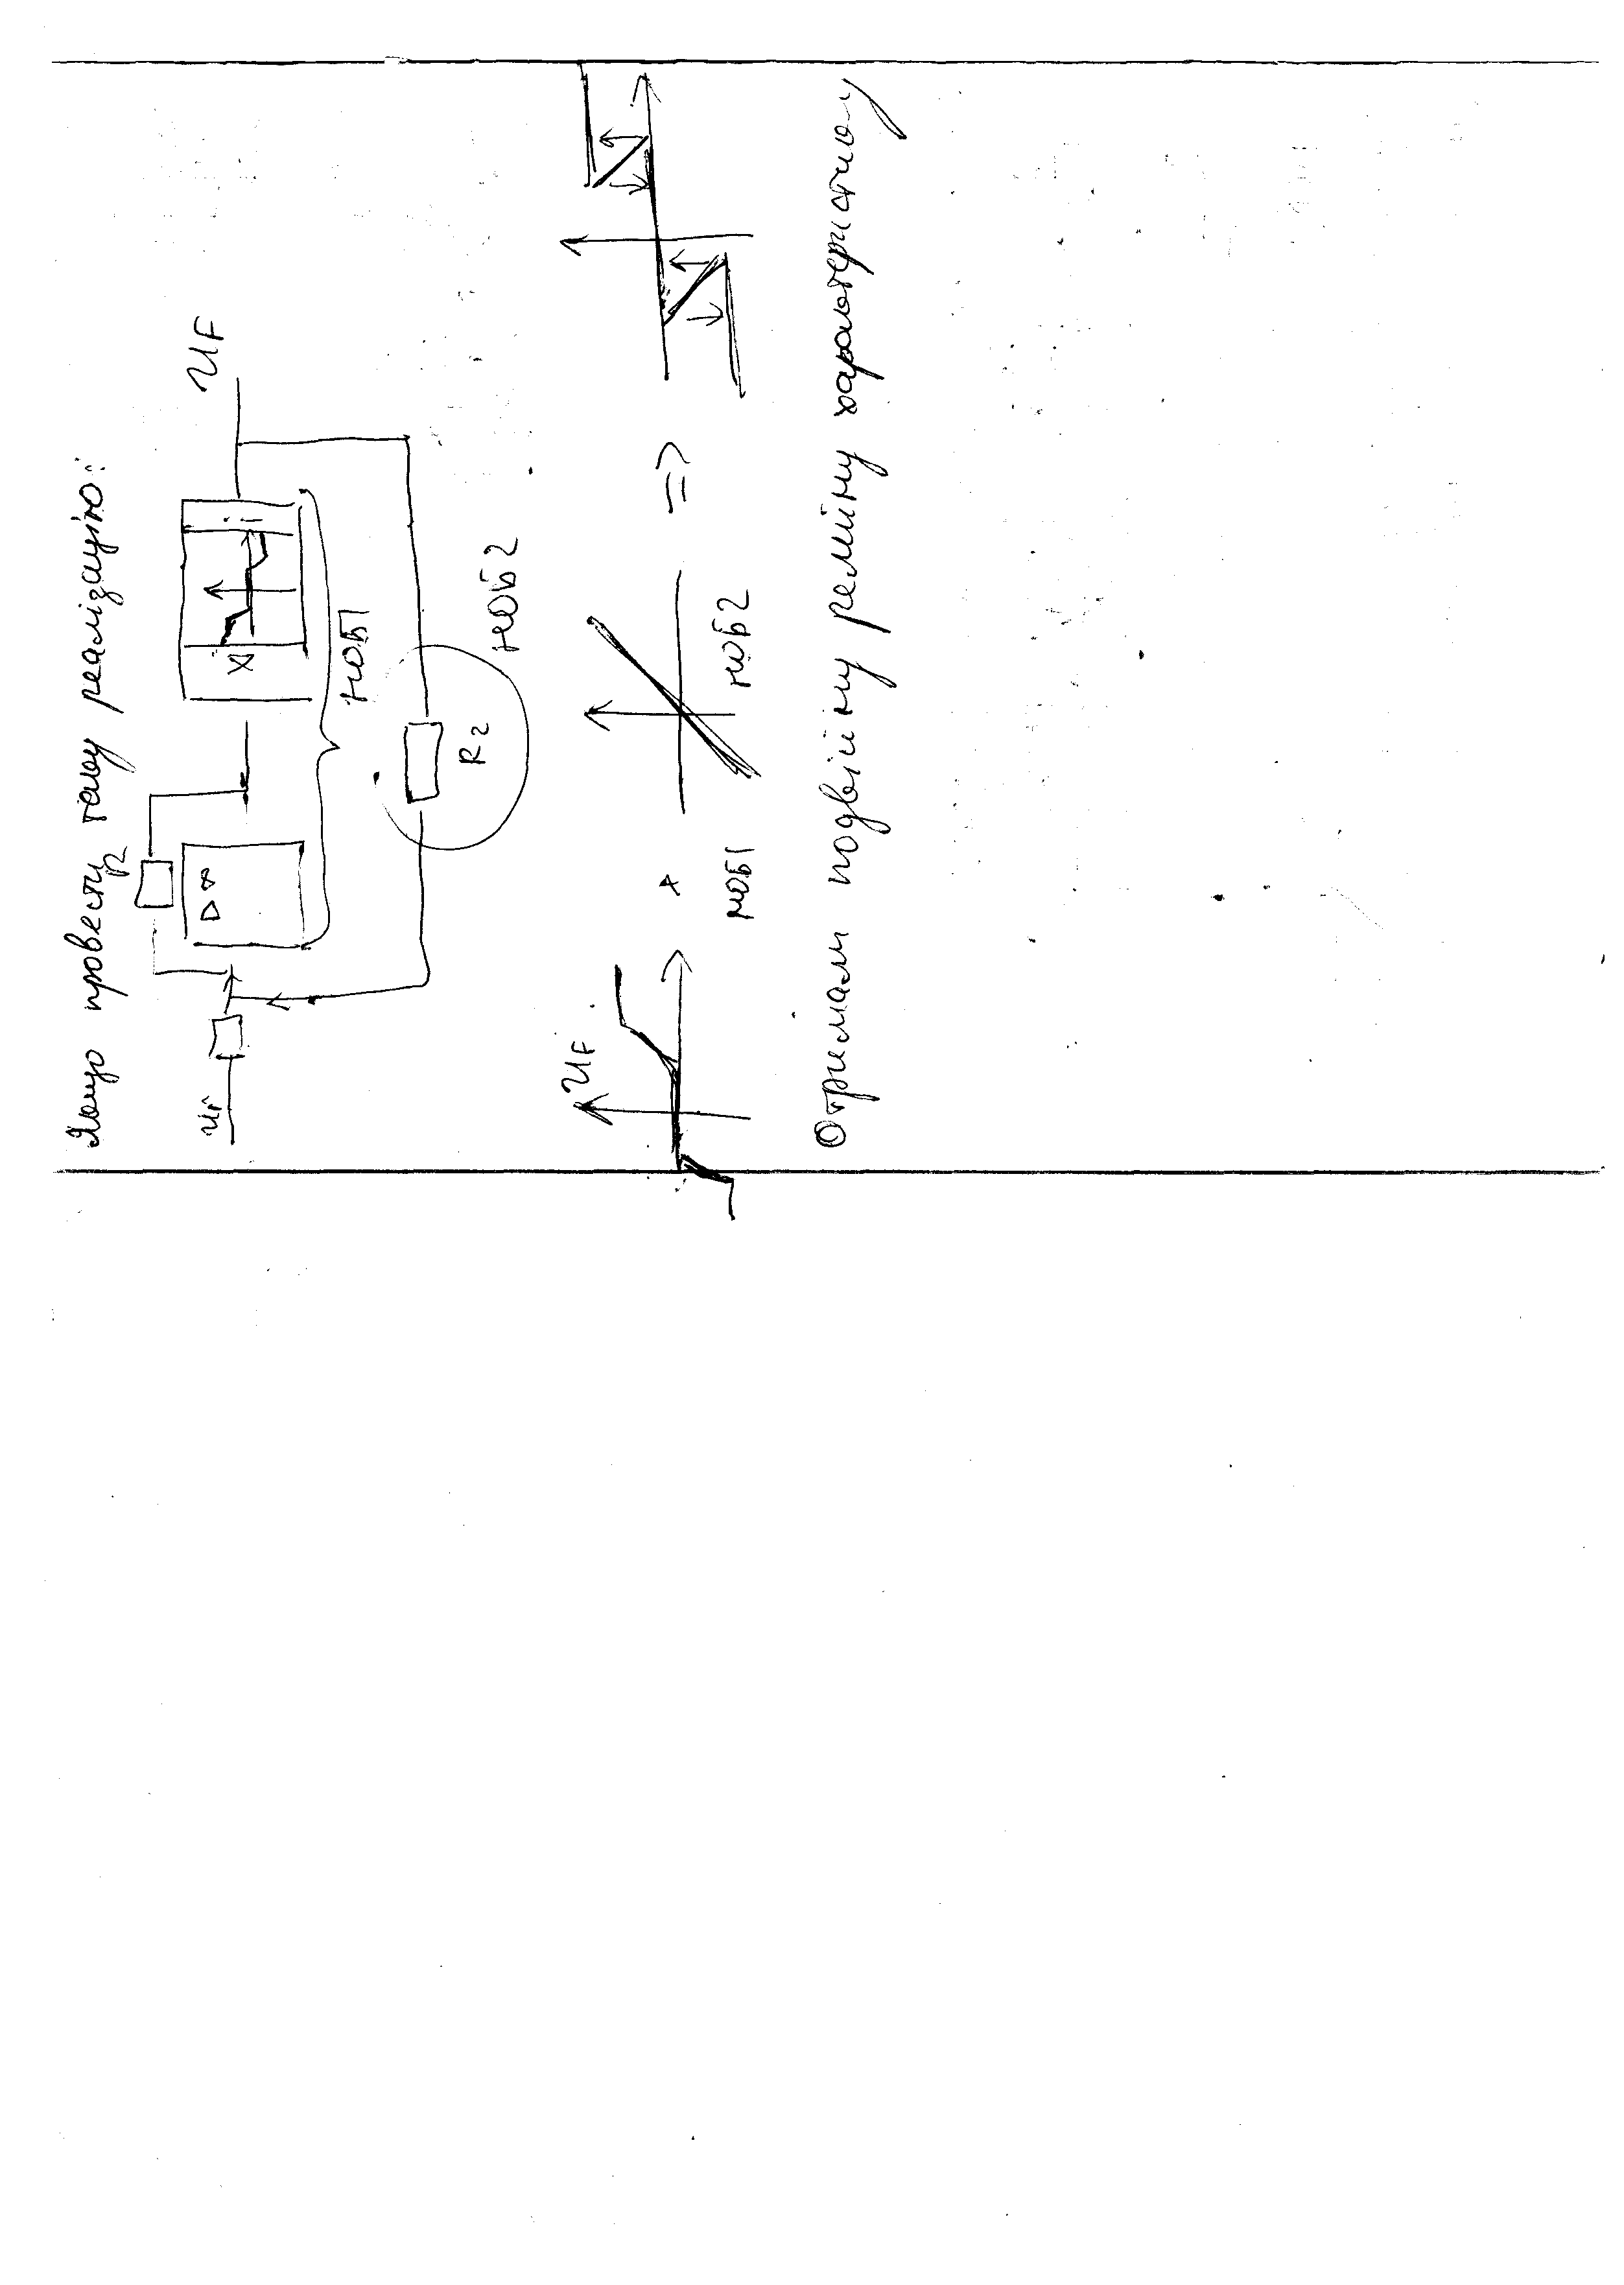 Якщо провести таку реалізацію:
UF
R
D ∞
НОБ1
R2
НОБ2
UF
+ =>
НОБ1 НОБ2
Отримали подвійну релейну характеристику